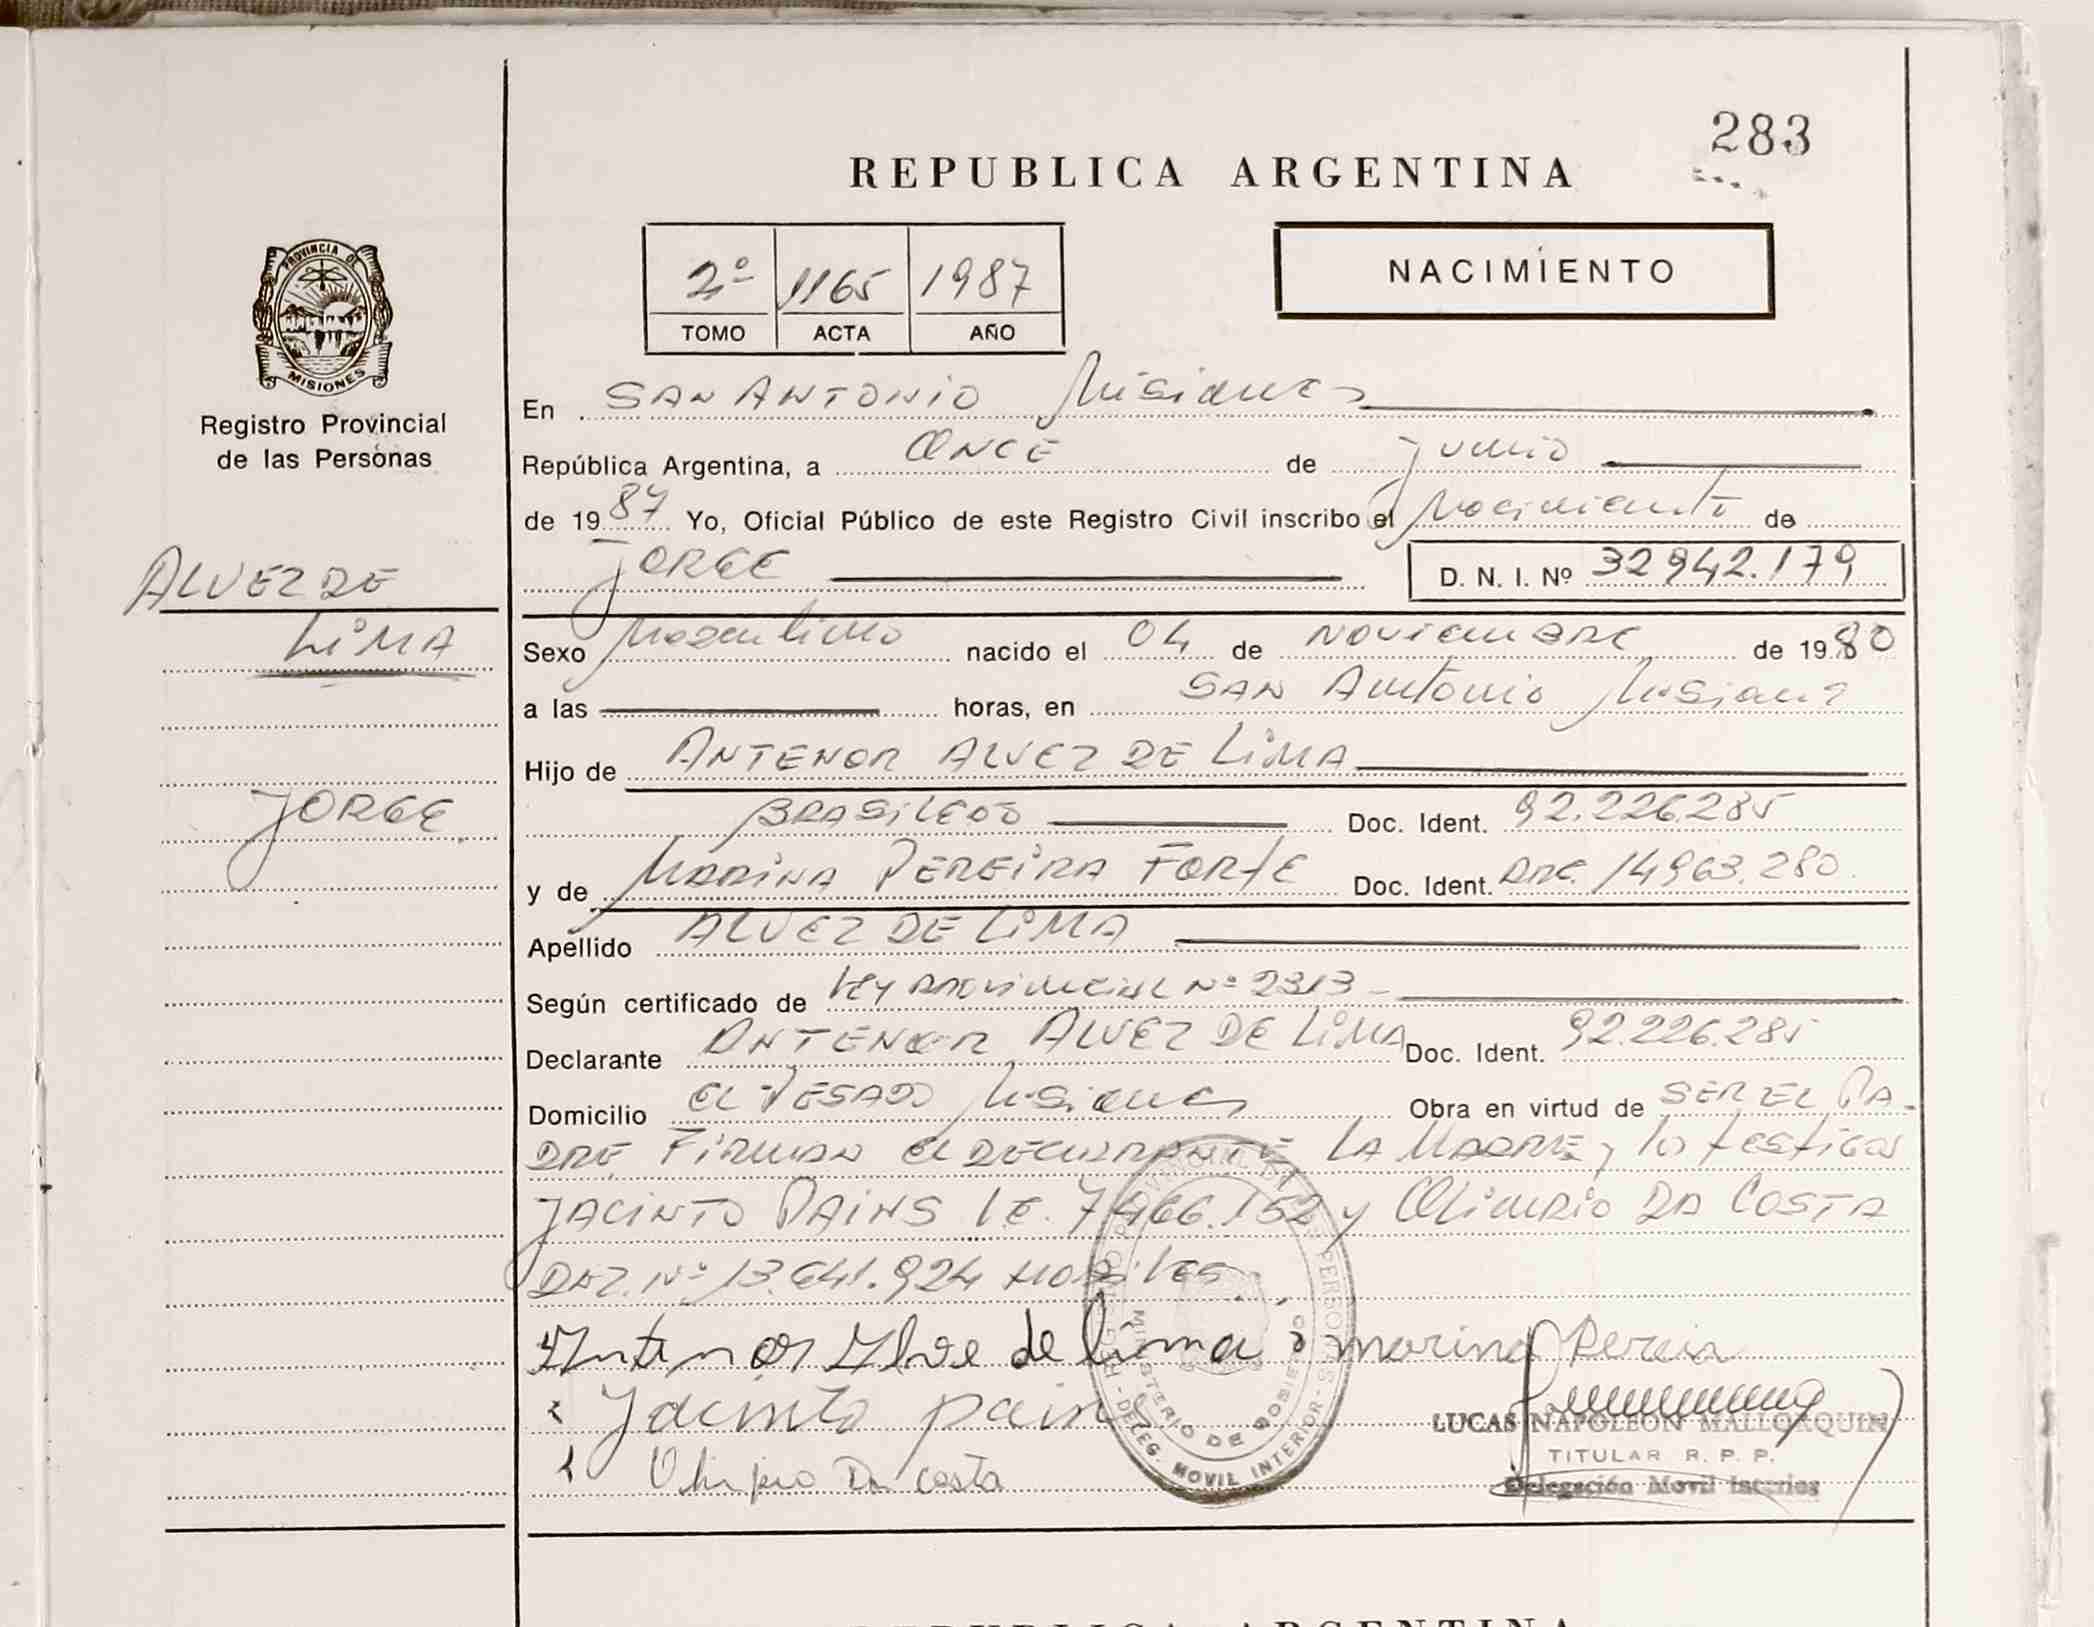 283
REPUBLICA ARGENTINA
2º 1165 1987
TOMO ACTA AÑO
NACIMIENTO
PROVINCIA DE
MISIONES
Registro Provincial
de las Personas
ALVEZ DE
LIMA
JORGE
En SAN ANTONIO Misiones
República Argentina, a ONCE de junio
de 1987 Yo, Oficial Público de este Registro Civil inscribo el Nacimiento de
JORGE D. N. I. Nº 32942.179
Sexo Masculino nacido el 04 de NOVIEMBRE de 1980
a las horas, en SAN Antonio Misiones
Hijo de ANTENOR ALVEZ DE LIMA
BRASILEÑO Doc. Ident. 92.226.285
y de MARINA PEREIRA FORTE Doc. Ident. ARG. 14963.280
Apellido ALVEZ DE LIMA
Según certificado de LEY PROVINCIAL Nº 2313
Declarante ANTENOR ALVEZ DE LIMA Doc. Ident. 92.226.285
Domicilio EL PESADO Misiones Obra en virtud de SER EL PA-
DRE FIRMAN EL DECLARANTE LA MADRE y los testigos
JACINTO PAINS LE. 7466.152 y OLIMPIO DA COSTA
Nº 13.641.924 HABILES
Antenor Alve de lima marina Pereira
Jacinto pains
Olimpio Da costa
REGISTRO PROVINCIAL DE LAS PERSONAS
MINISTERIO DE GOBIERNO
- DELEG. MOVIL INTERIOR -
LUCAS NAPOLEON MALLORQUIN
TITULAR R. P. P.
Delegación Movil Interior
REPUBLICA ARGENTINA